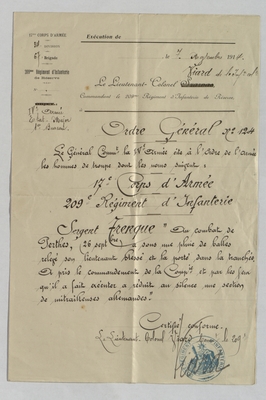 17me CORPS D'ARMÉE
Brigade
209me Régiment d'Infanterie
de Réserve
Exécution de
Le Lieutenant-Colonel
Commandant le 209me Régiment d'Infanterie de Réserve
Etat Major
1er Bureau
Ordre Général No 124
Le Général Commt la IVe Armée cite à l'ordre de l'armée
les hommes de troupe dont les noms suivent :
17e Corps d'Armée
209e Régiment d'Infanterie
Sergent Trenque du combat de
Perthes, 26 sept sous une pluie de balles
relevé son lieutenant blessé et l'a porté dans la tranchée,
A pris le commandement de la Compie et par les feux
qu'il a fait exécuter a réduit au silence une section
de mitrailleuses allemandes.
Certifié conforme.
Le Lieutenant Colonel Viard le 209e